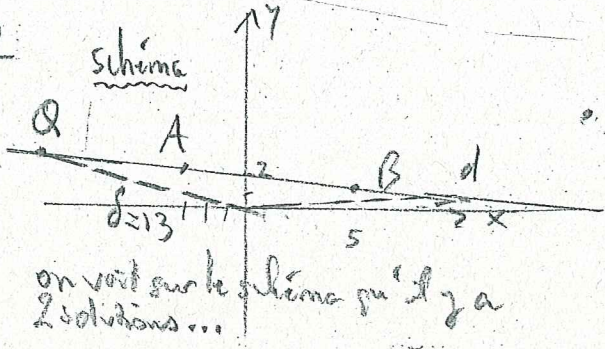 y
schéma
Q
A
2
B
d
δ=13
5
x
on voit sur le schéma qu'il y a
2 solutions...